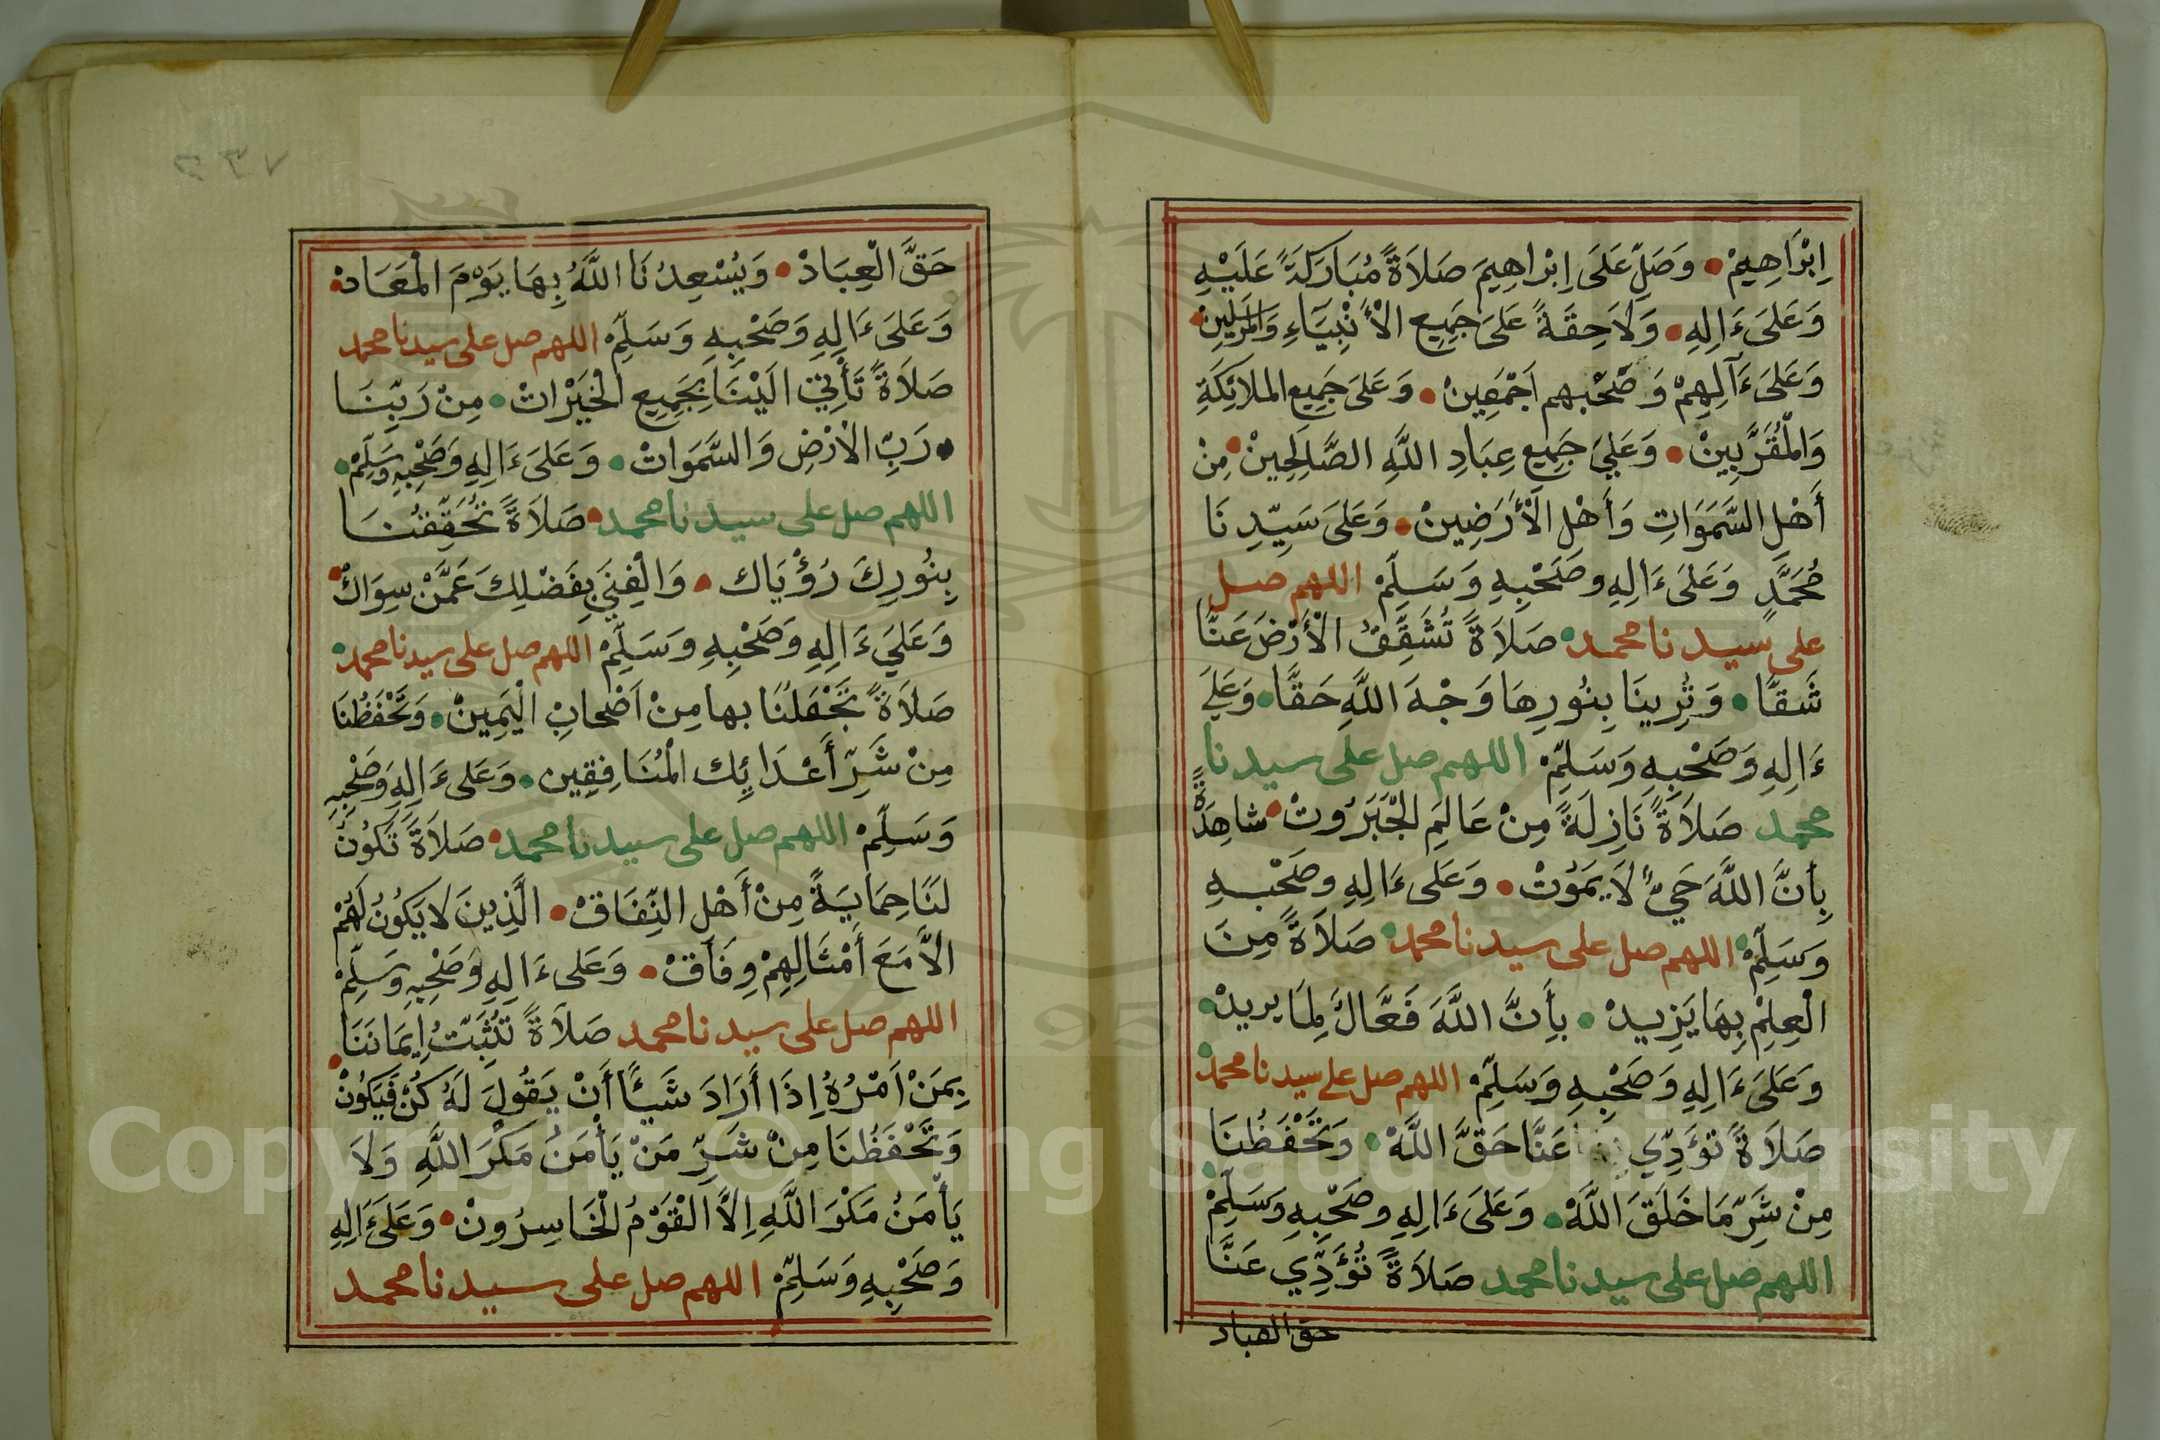 اِبْرَاهِيمْ • وَصَلِّ عَلَى اِبْرَاهِيمَ صَلاَةً مُبَارَكَةً عَلَيْهِ
وَعَلَى ءَالِهِ • وَلاَحِقَةً عَلَى جَمِيعِ الْأَنْبِيَاءِ وَالْمُرْسَلِينْ •
وَعَلَى ءَآلِهِمْ وَصَحْبِهِم اَجْمَعِينْ • وَعَلَى جَمِيعِ الملائِكَةِ
وَالْمُقَرَّبِينْ • وَعَلَى جَمِيعِ عِبَادِ اللَّهِ الصَّالِحِينْ • مِنْ
أَهْلِ السَّمَوَاتِ وَأَهْلِ الْأَرَضِينْ • وَعَلَى سَيِّدِنَا
مُحَمَّدٍ وَعَلَى ءَالِهِ وصَحْبِهِ وَسَلِّمْ اللهم صل
على سيدنا محمد • صَلاَةً تُشَقِّقُ الْأَرْضَ عَنَّا
شَقًّا • وَتُرِينَا بِنُورِهَا وَجْهَ اللَّهِ حَقًّا • وَعَلَى
ءَالِهِ وَصَحْبِهِ وَسَلِّمْ اللهم صل على سيدنا
محمد صَلاَةً نَازِلَةً مِنْ عَالَمِ الْجَبَرُوتْ • شاهِدَةً
بِأَنَّ اللَّهَ حَيٌّ لاَ يَمُوتْ • وَعَلَى ءَالِهِ وصَحْبِهِ
وَسَلِّمْ • اللهم صل على سيدنا محمد • صَلاَةً مِنَ
الْعِلِمْ بِهَا يَزِيدْ • بِأَنَّ اللَّهَ فَعَّالٌ لِمَا يريدْ •
وَعَلَى ءَالِهِ وَصَحْبِهِ وَسَلِّمْ • اللهم صل على سيدنا محمد •
صَلاَةً تؤَدِّي عَنَّا حَقَّ اللَّهْ • وَتَحْفَظُنَا
مِنْ شَرِّ مَا خَلَقَ اللَّهْ • وَعَلَى ءَالِهِ وصَحْبِهِ وَسَلِّمْ •
اللهم صل على سيدنا محمد صَلاَةً تُؤَدِّي عَنَّا
حق العباد
حَقَّ الْعِبَادْ • وَيُسْعِدُنَا اللَّهُ بِهَا يَوْمَ الْمَعَادْ •
وَعَلَى ءَالِهِ وَصَحْبِهِ وَسَلِّمْ اللهم صل على سيدنا محمد
صَلاَةً تَأْتِي الَيْنَا بِجَمِيعِ الْخَيْرَاتْ • مِنْ رَبِّنَا
• رَبِّ الاَرْضِ وَالسَّمَوَاتْ • وَعَلَى ءَالِهِ وَصَحْبِهِ وَسَلِّمْ •
اللهم صل على سيدنا محمد • صَلاَةً تُحَقِّقُنَا
بِنُورِكَ رُؤْيَاك • وَالْغِنَى بِفَضْلِكَ عَمَّنْ سِوَاكْ •
وَعَلَى ءَالِهِ وَصَحْبِهِ وَسَلِّمْ اللهم صل على سيدنا محمد •
صَلاَةً تَجْعَلُنَا بها مِنْ اَصْحابِ الْيَمِينْ • وَتَحْفَظُنَا
مِنْ شَرِّ أَعْدَائِك الْمُنَافِقِين • وَعَلى ءَالِهِ وَصَحْبِهِ
وَسَلِّمْ اللهم صل على سيدنا محمد • صَلاَةً تَكُونُ
لَنَا حِمَايَةً مِنْ أَهْلِ النِّفَاقْ • الَّذِينَ لاَ يَكُونُ لَهُمْ
الاَّ مَعَ أَمْثَالِهِمْ وِفَاقْ • وَعَلى ءَالِهِ وَصَحْبِهِ وَسَلِّمْ
اللهم صل على سيدنا محمد صَلاَةً تُثَبِّتُ اِيمَانَنَا •
بِمَنْ اَمْرُهُ اِذَا أَرَادَ شَيْئًا أَنْ يَقُولَ لَهُ كُنْ فَيَكُونْ
وَتَحْفَظُنَا مِنْ شَرِّ مَنْ يَأْمَنُ مَكْرَ اللَّهِ وَلاَ
يَأْمَنُ مَكْرَ اللَّهِ اِلاَّ الْقَوْمُ الْخَاسِرُونْ • وَعَلَى ءَالِهِ
وَصَحْبِهِ وَسَلِّمْ اللهم صل على سيدنا محمد
Copyright © King Saud University